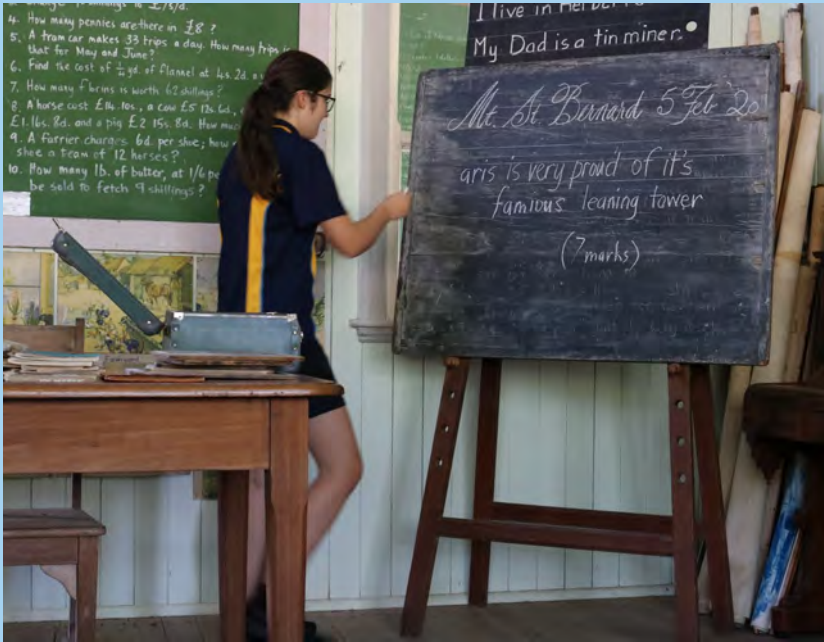 4. How many pennies are there in £8 ?
5. A tram car makes 33 trips a day. How many trips is
that for May and June?
6. Find the cost of yd. of flannel at 4s. 2d. a
7. How many florins is worth 62 shillings?
8. A horse cost £14. 10s., a cow £5 12s. 6d.,
£1. 16s. 8d. and a pig £2 15s. 8d. How muc
9. A farrier charges 6d. per shoe; how
shoe a team of 12 horses?
10. How many lb. of butter, at 1/6 pe
be sold to fetch 9 shillings?
I live in Herber
My Dad is a tin miner.
Mt. St. Bernard 5 Feb 20
aris is very proud of it's
famious leaning tower
(7 marks)